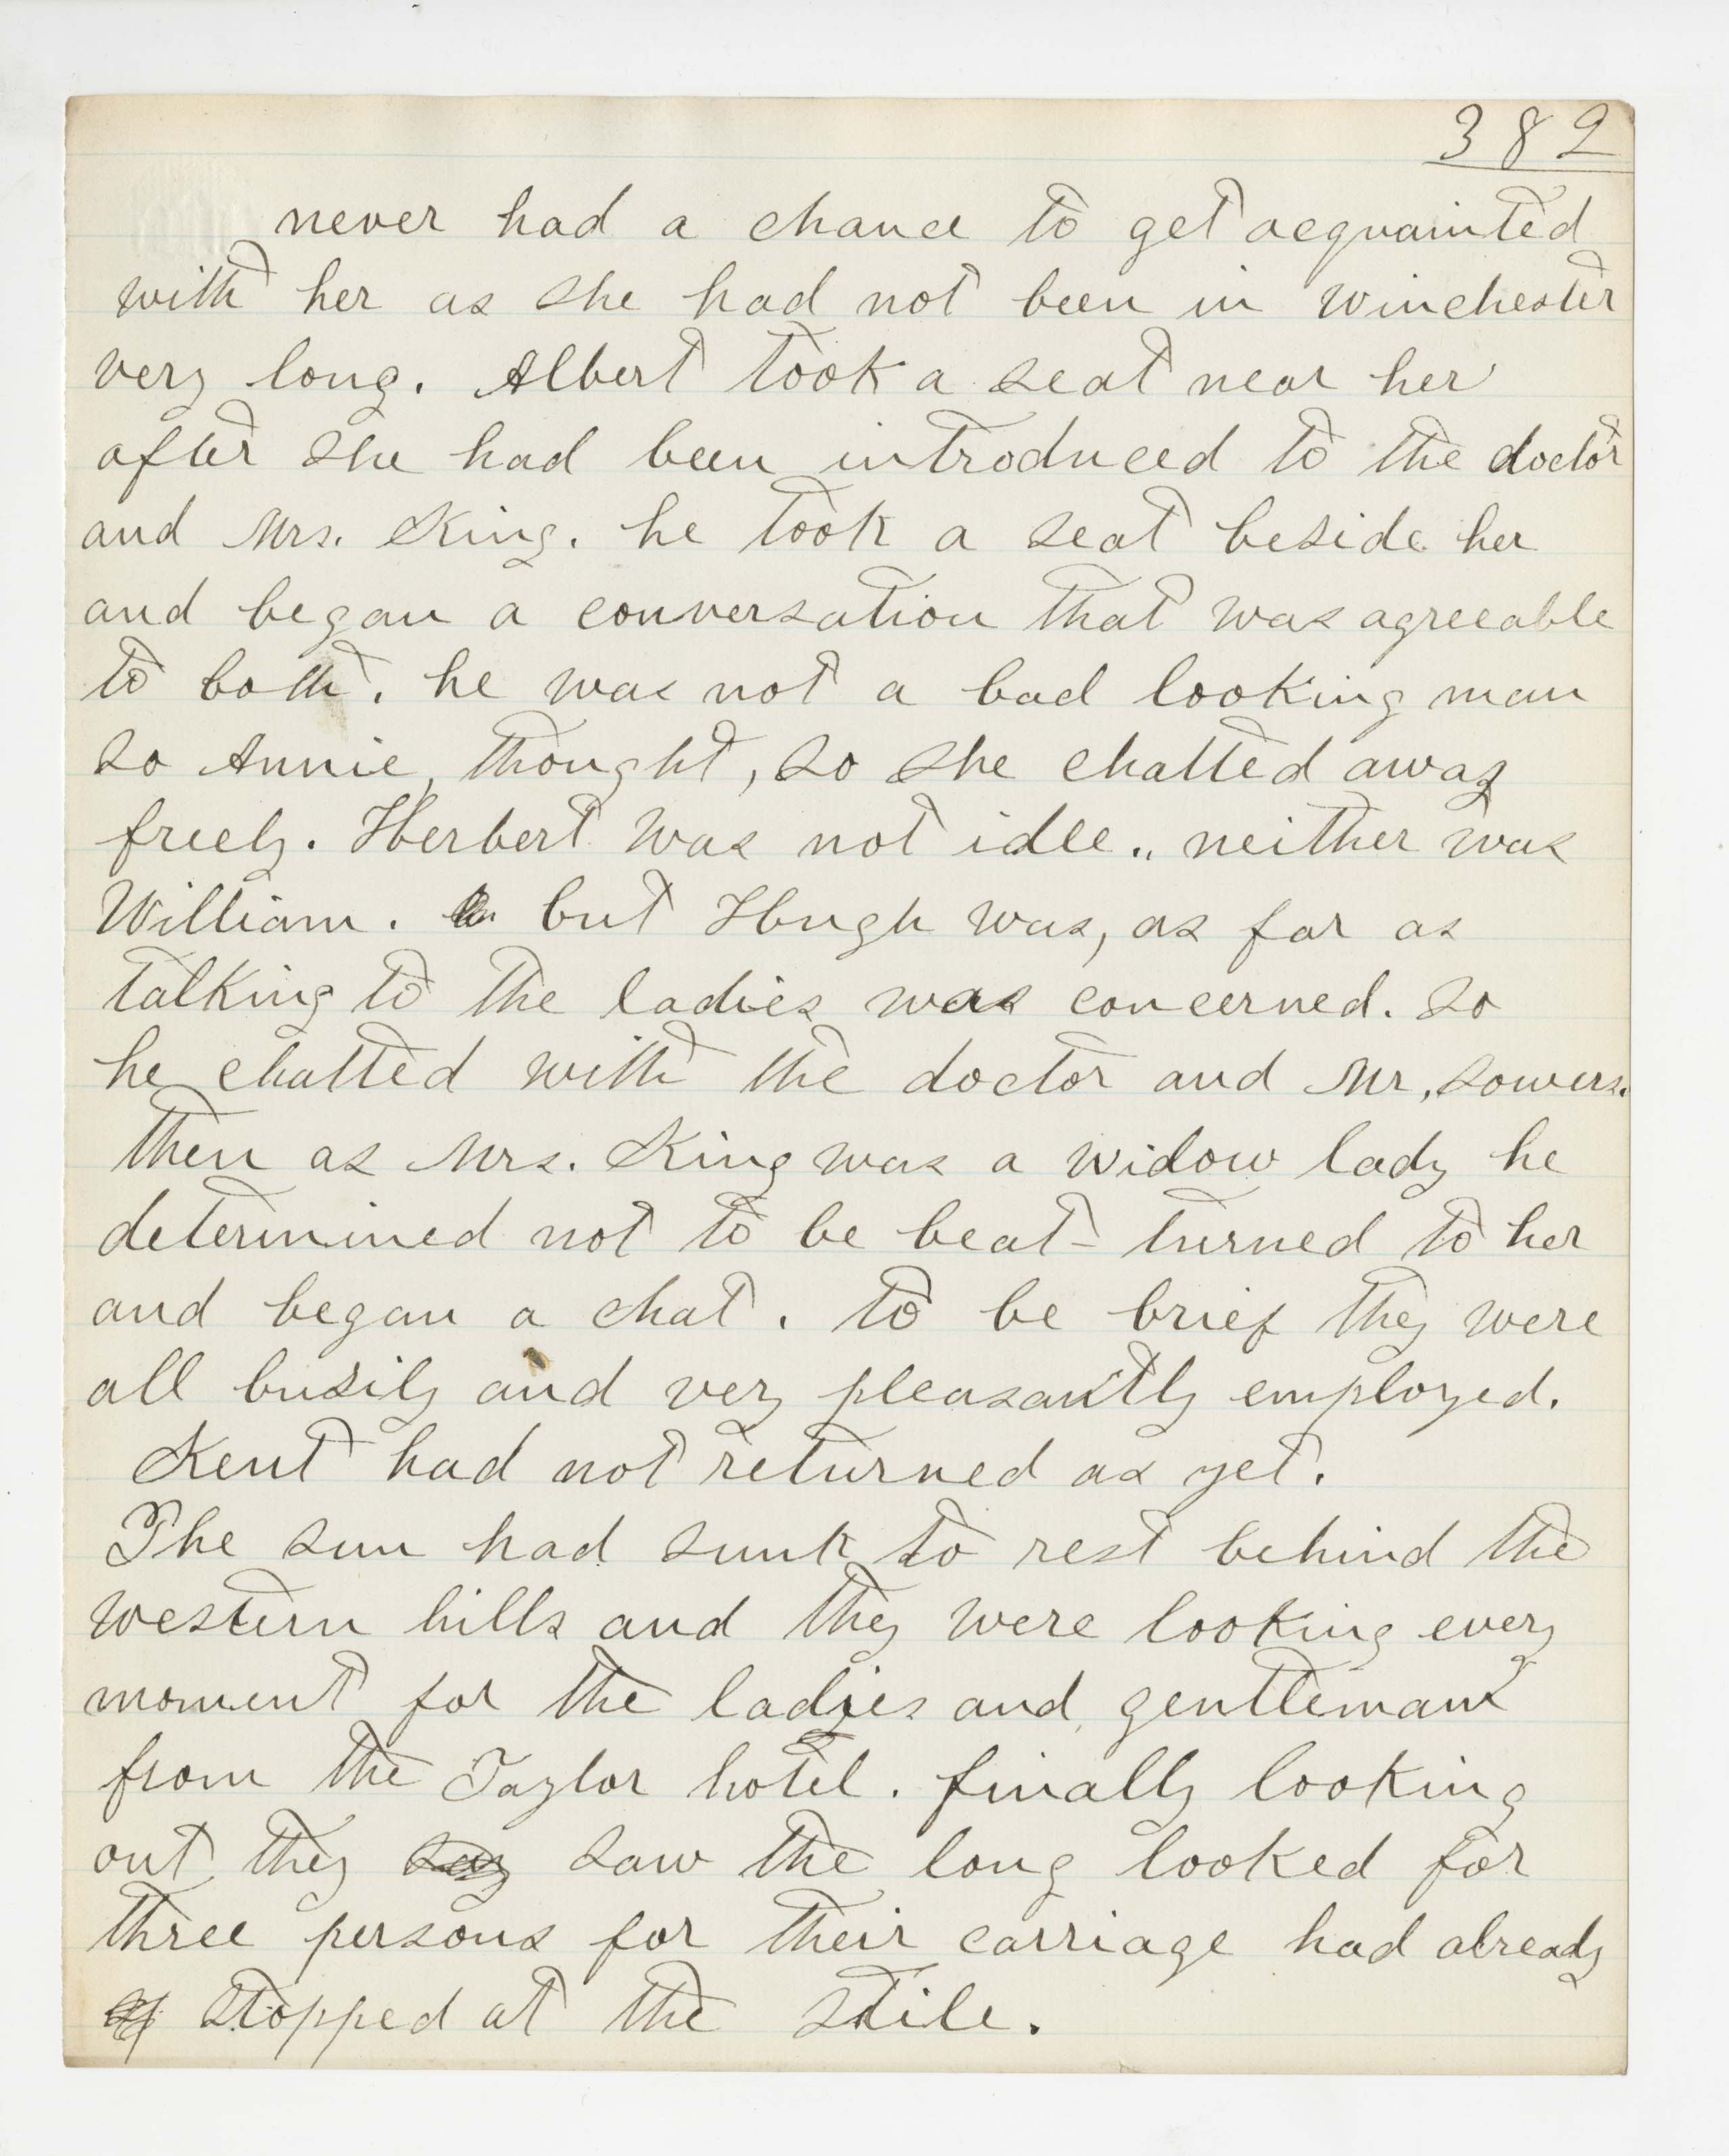 382
never had a chance to get acquainted
with her as she had not been in Winchester
very long. Albert took a seat near her
after she had been introduced to the doctor
and Mrs. King. he took a seat beside her
and began a conversation that was agreeable
to both. he was not a bad looking man
so Annie, thought, so she chatted away
freely. Herbert was not idle.. neither was
William. but Hugh was, as far as
talking to the ladies was concerned. so
he chatted with the doctor and Mr, Sowers.
then as Mrs. King was a widow lady he
determined not to be beat - turned to her
and began a chat. to be brief they were
all busily and very pleasantly employed.
Kent had not returned as yet.
The sun had sunk to rest behind the
western hills and they were looking every
moment for the ladies and gentleman
from the Taylor hotel. finally looking
out they say saw the long looked for
three persons for their carriage had already
stopped at the stile.